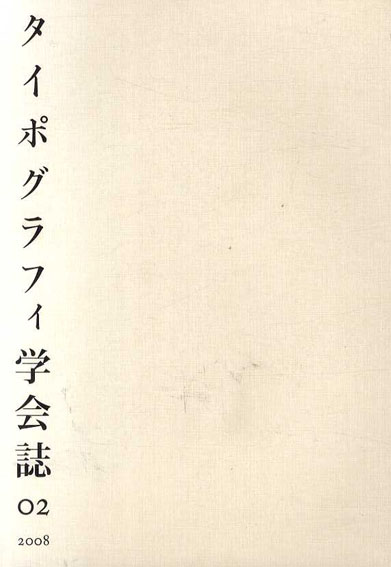 タイポグラフィ学会誌
02
2008